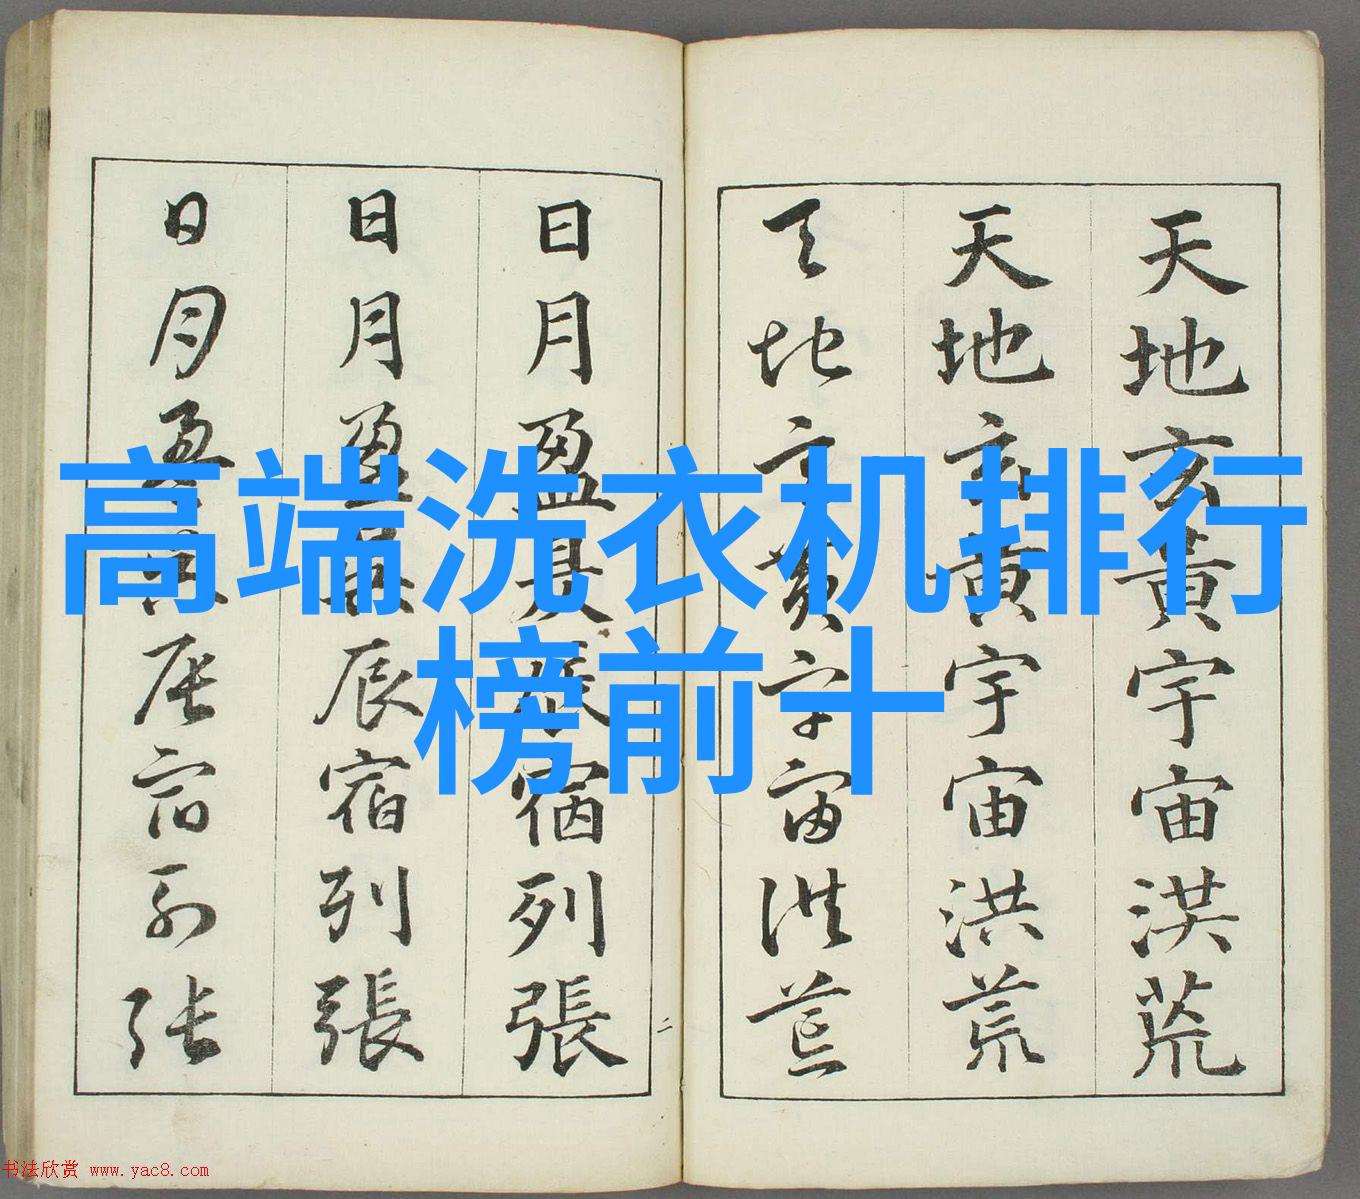 高端洗衣机排行
榜前十
天地玄黃宇宙洪荒
天地玄黃宇宙洪荒
天地玄黃宇宙洪荒
二
日月盈昃辰宿列張
日月盈昃辰宿列張
日月盈昃辰宿列張
书法欣赏 www.yac8.com